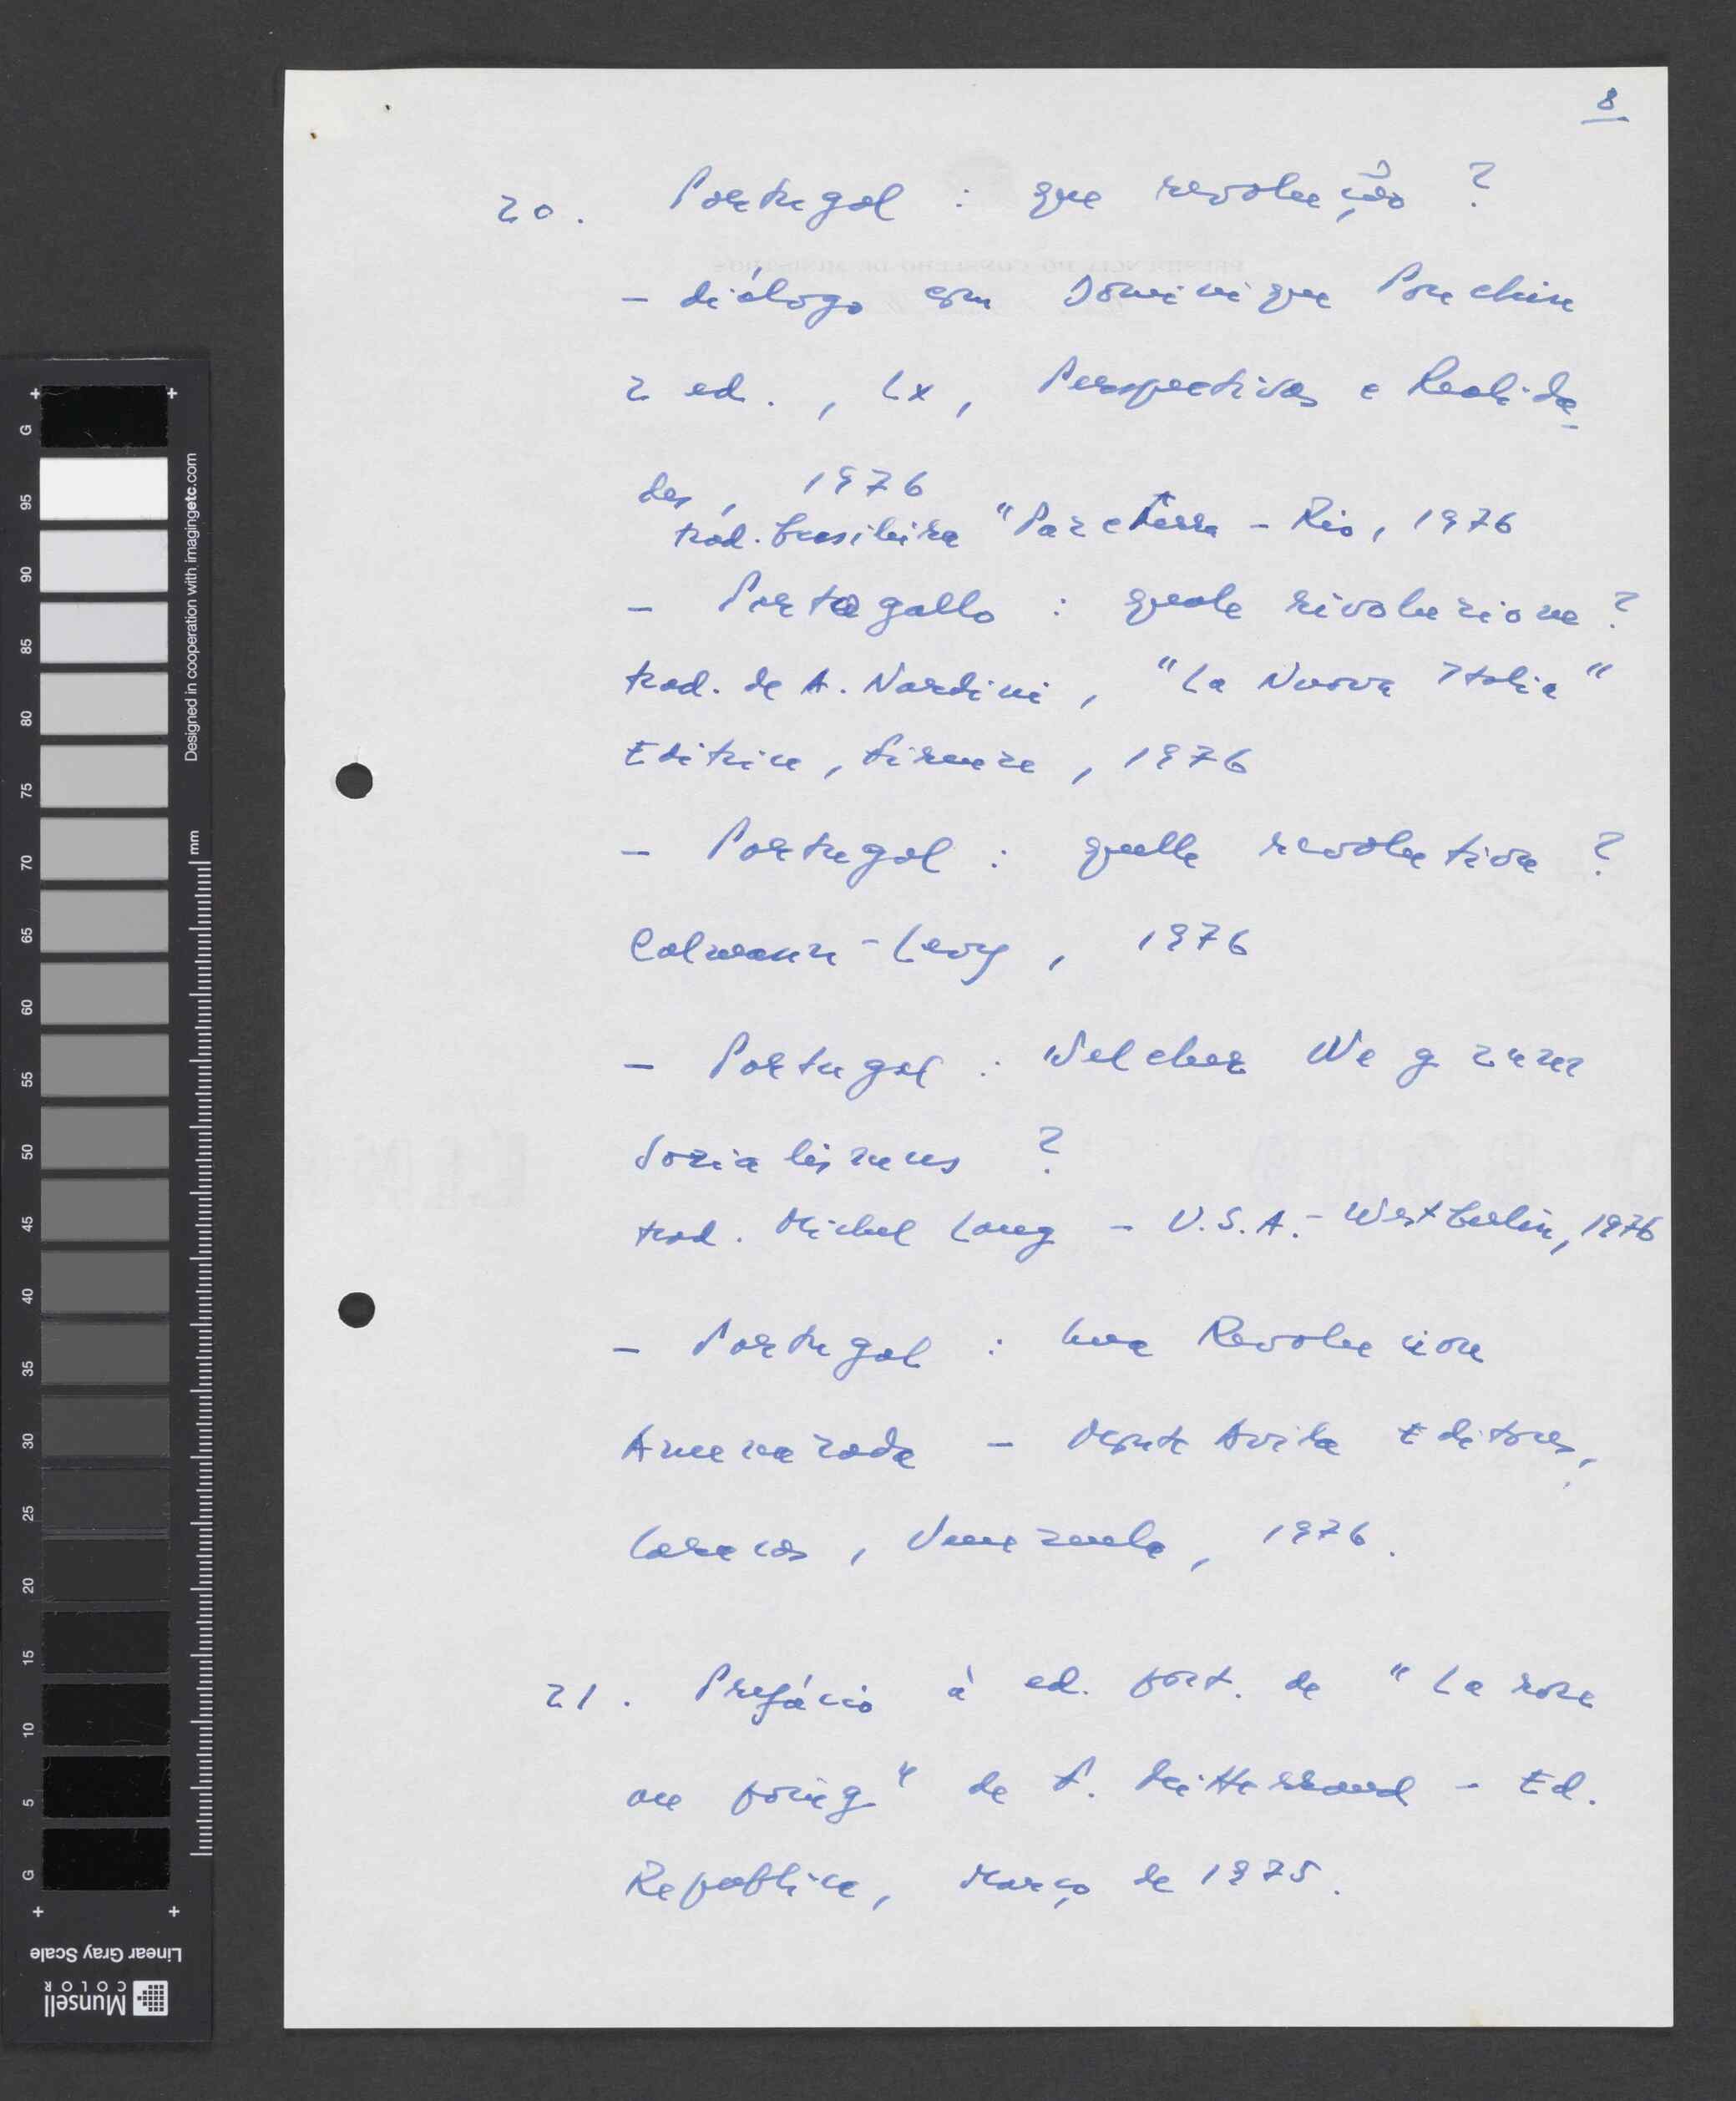 8
20. Portugal : que revolução ?
- diálogo com Dominique Pouchin
2 ed. , Lx, Perspectivas e Realida
des, 1976
trad. brasileira "Paz e Terra - Rio, 1976
- Portogallo : quale rivoluzione ?
trad. de A. Nardini, "La Nuova Italia"
Editrice, Firenze, 1976
- Portugal : quelle revolution ?
Calmann-Levy, 1976
- Portugal : Welcher Weg zum
Sozialismus ?
trad. Michel Lang - V.S.A. - West Berlin, 1976
- Portugal : una Revolucion
Amenazada - Avila Editores,
Caracas, Venezuela, 1976.
21. Prefácio à ed. port. de "La rose
au poing" de F. Mitterrand - Ed.
Republica, Março de 1975.
G 95 90 85 80 75 70 65 60 55 50 45 40 35 30 25 20 15 10 5 G
Designed in cooperation with imagingetc.com
mm
Linear Gray Scale
Munsell
COLOR